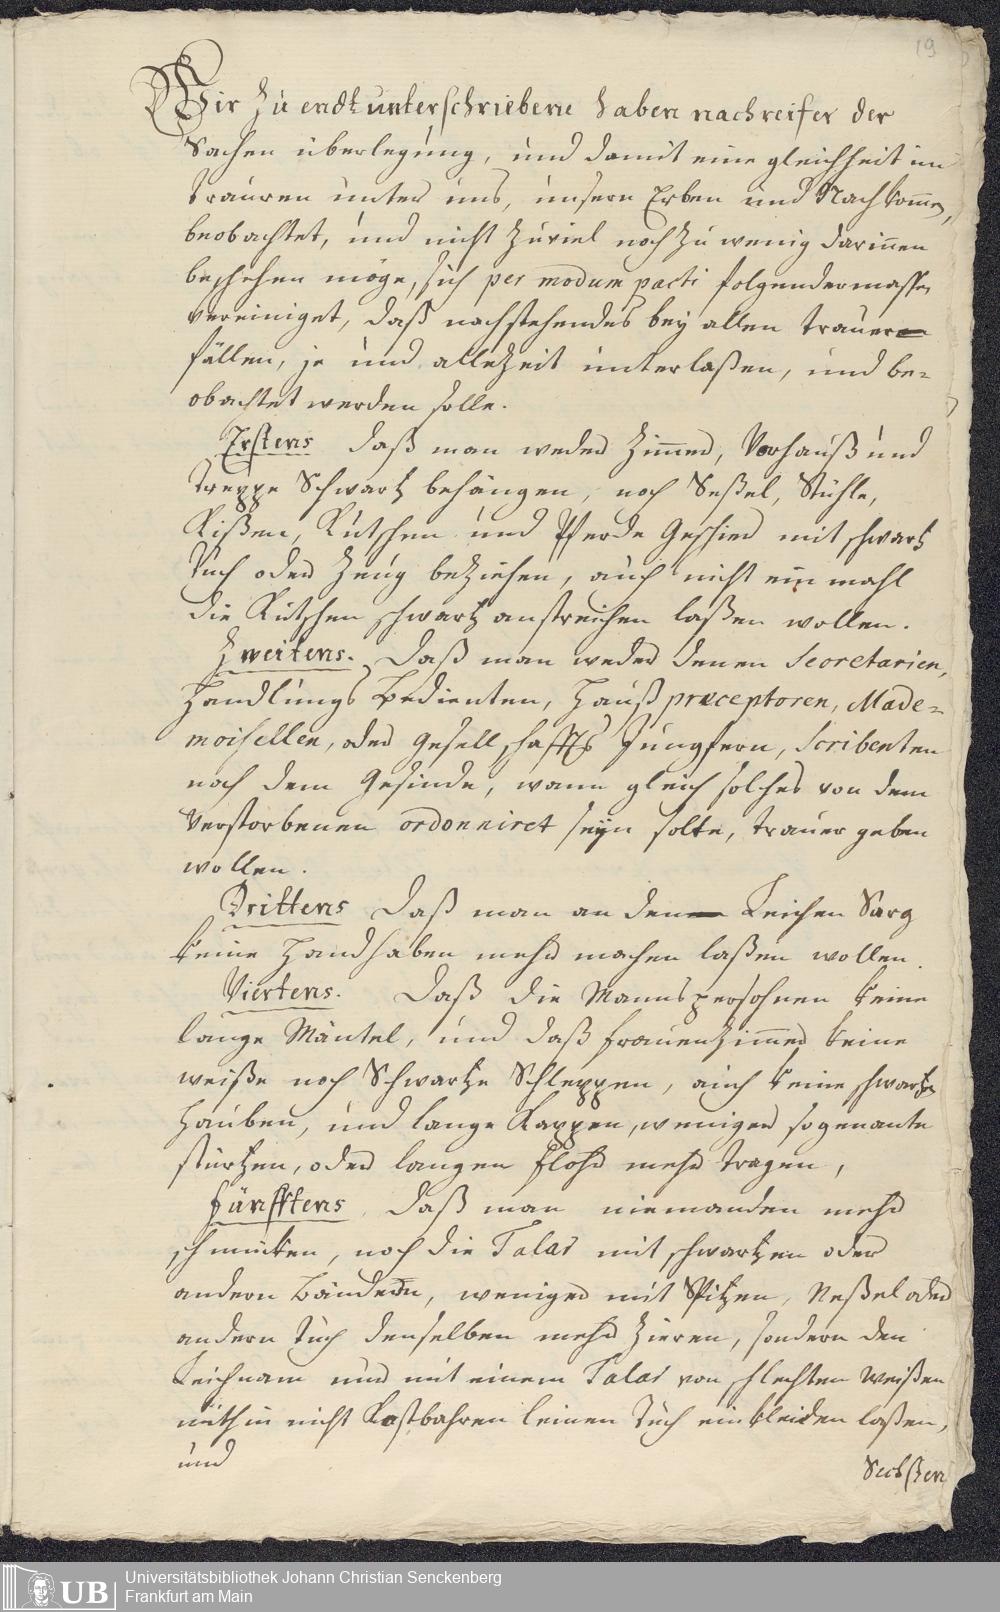 19
Wir zu endt unterschriebene haben nach reifer der
Sachen überlegung, und damit eine gleichheit im
trauren unter uns, unsern Erben und Nachkom̄en,
beobachtet, und nicht zuviel noch zu wenig darinnen
beschehen möge, sich per modum pacti folgendermassen
vereiniget, daß nachstehendes bey allen trauer
fällen, je und allezeit unterlaßen, und be-
obachtet werden solle.
Erstens daß man weder Zim̄er, Vorhauß und
Treppe Schwartz behängen, noch Seßel, Stühle,
Kißen, Kutschen und Pferde Geschirr mit schwartz
Tuch oder Zeug beziehen, auch nicht ein mahl
die Kutschen schwartz anstreichen laßen wollen.
Zweitens. Daß man weder denen Secretarien,
Handlungs Bedienten, Hauß præceptoren, Made-
moisellen, oder Gesellschaffts Jungfern, Scribenten
noch dem Gesinde, wann gleich solches von dem
Verstorbenen ordonniret seyn solte, trauer geben
wollen.
Drittens Daß man an den Leichen Sarg
keine Handhaben mehr machen laßen wollen.
Viertens. Daß die Mannspersohnen keine
lange Mäntel, und daß frauenzim̄er keine
weiße noch Schwartze Schleppen, auch keine schwartze
Hauben, und lange Kappen, weniger sogenante
stürtzen, oder langen flohr mehr tragen,
fünfftens Daß man niemanden mehr
schmücken, noch die Talar mit schwartzen oder
andern Bändern, weniger mit Spitzen, Neßel oder
andern Tuch denselben mehr zieren, sondern den
Leichnam nur mit einem Talar von schlechten weißen
mithin nicht Kostbahren leinen Tuch einkleiden laßen,
und
Sechsten
UB Universitätsbibliothek Johann Christian Senckenberg
Frankfurt am Main